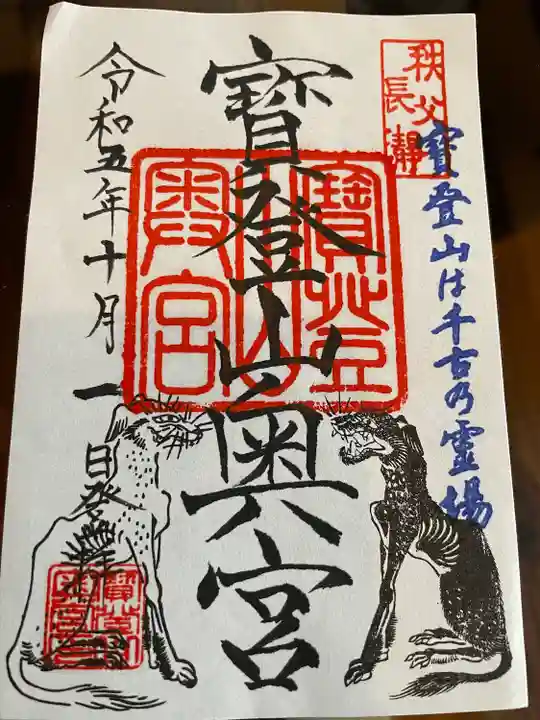 秩父
長瀞
寶登山は千古乃霊場
寶登山奥宮
寶登
山
奥宮
令和五年十月一日登拝